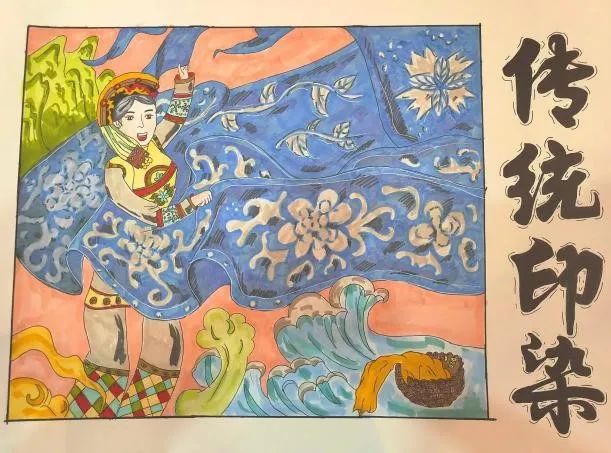 传统印染